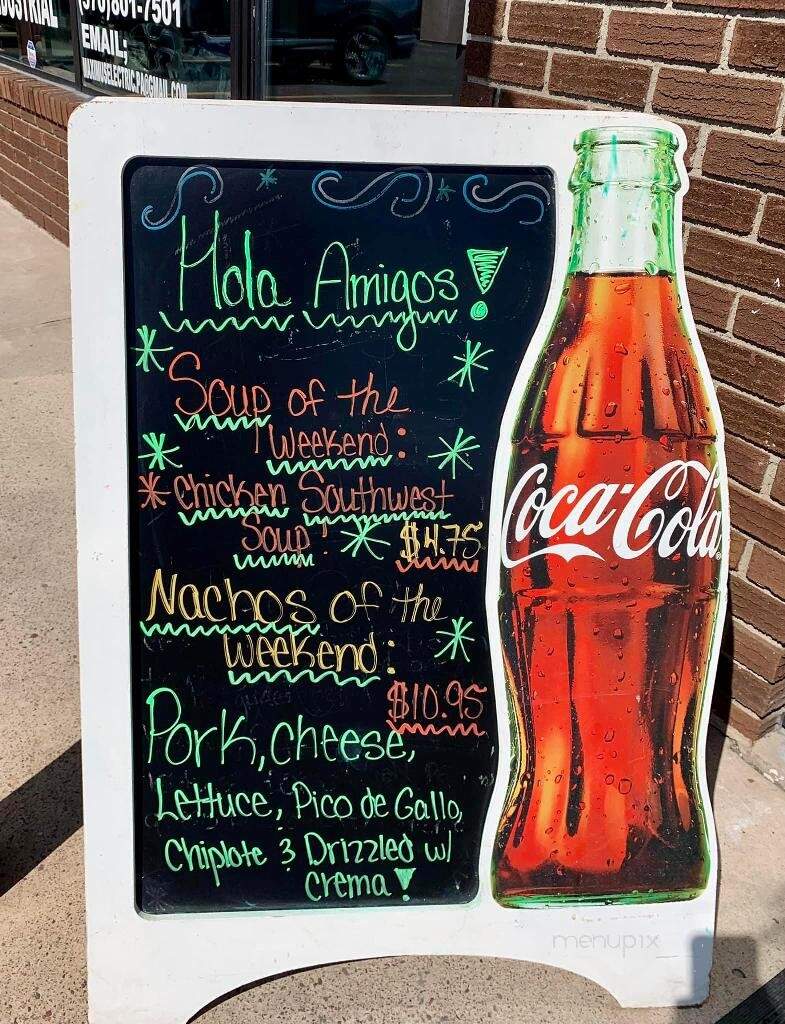 DUSTRIAL
(570)801-7501
EMAIL;
MAXIMUSELECTRIC.PA@GMAIL.COM
Hola Amigos!
Soup of the
Weekend:
* Chicken Southwest
Soup! $4.75
Nachos of the
Weekend:
$10.95
Pork, Cheese,
Lettuce, Pico de Gallo,
Chiplote & Drizzled w/
Crema!
Coca-Cola
menupix